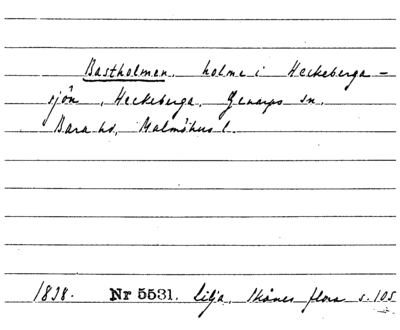 Bastholmen. holme i Heckeberga-
sjön, Heckeberga, Genarps sn.
Bara hd, Malmöhus l.
1838. Nr 5531. Lilja, Skånes flora s. 105